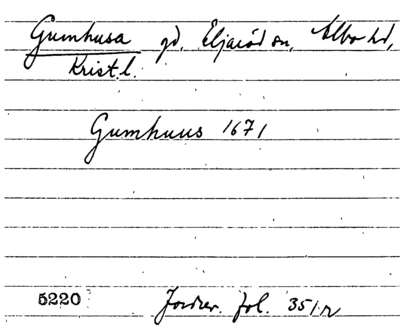 Gumhusa gd, Eljaröd sn, Albo hd,
Krist.l.
Gumhuus 1671
5220 Jordrev. fol. 351 r